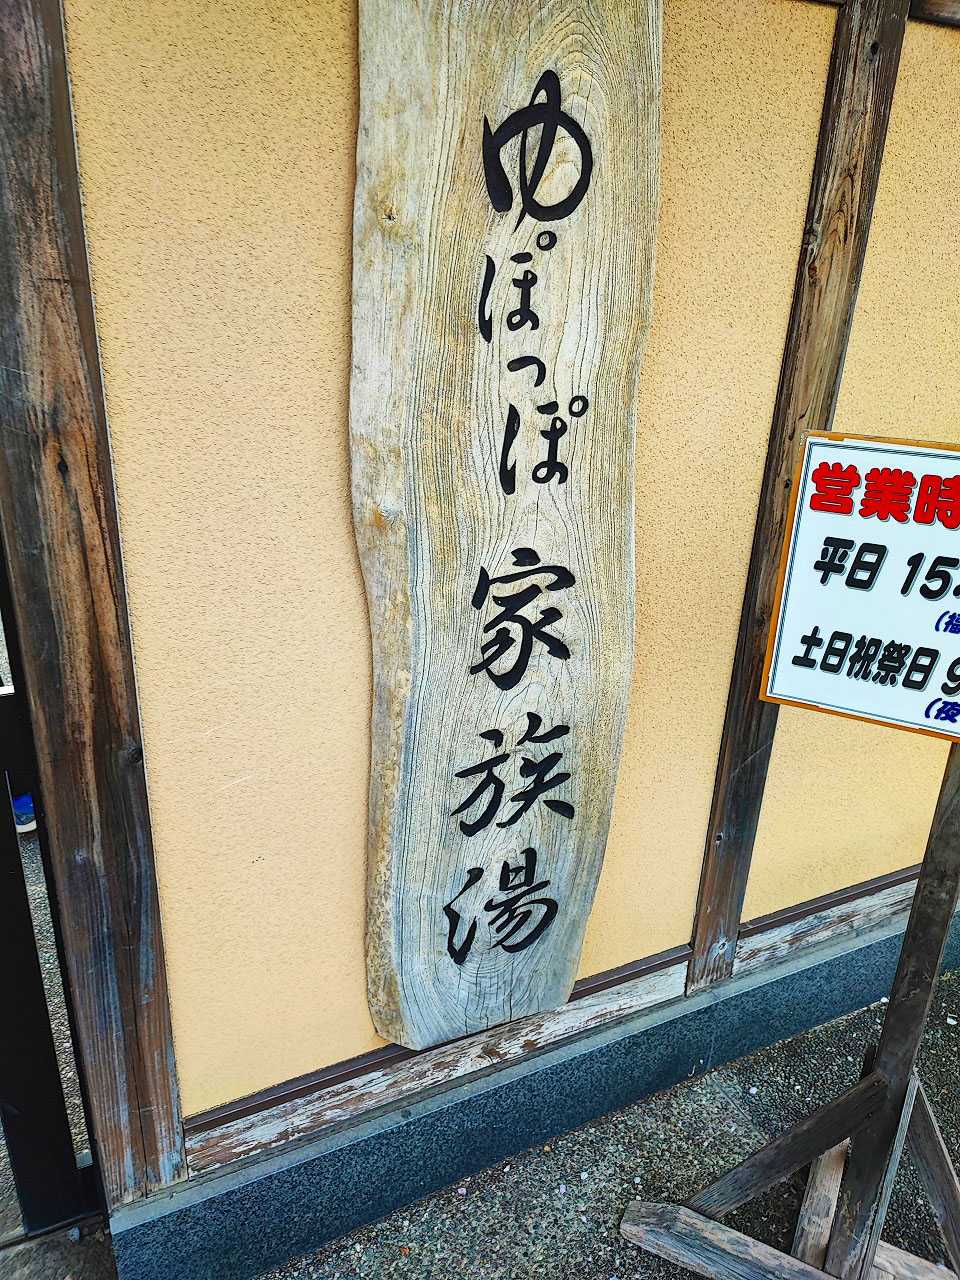 ゆぽっぽ家族湯
営業時
平日 15
(福
土日祝祭日 9
(夜